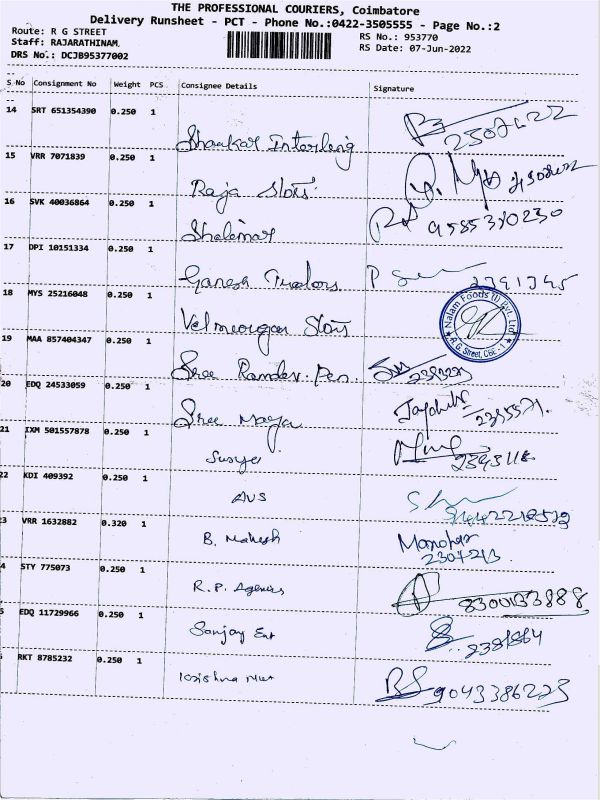 THE PROFESSIONAL COURIERS, Coimbatore
Delivery Runsheet - PCT - Phone No.:0422-3505555 - Page No.:2
Route: R G STREET
RS No.: 953770
Staff: RAJARATHINAM.
RS Date: 07-Jun-2022
DRS No.: DCJB95377002
S No Consignment No Weight PCS Consignee Details Signature
14 SRT 651354390 0.250 1
Shankar Interling
15 VRR 7071839 0.250 1
Raja Stors
16 SVK 40036864 0.250 1
Shalimar 9585320230
17 DPI 10151334 0.250 1
Ganesh Traders
18 MYS 25216048 0.250 1
Velmurgan Stors
Nalam Foods (I) Pvt. Ltd
R.G. Street, CBE - 1
19 MAA 857404347 0.250 1
Sree Ramdev Pen
20 EDQ 24533059 0.250 1
Sree Maga
21 IXM 501557878 0.250 1
Surya
22 KDI 409392 0.250 1
AVS
3 VRR 1632882 0.320 1
B. Mahesh Manohar
4 STY 775073 0.250 1
R.P. Agencies 8300133888
5 EDQ 11729966 0.250 1
Sanjay Ent
RKT 8785232 0.250 1
Krishna 9043386223